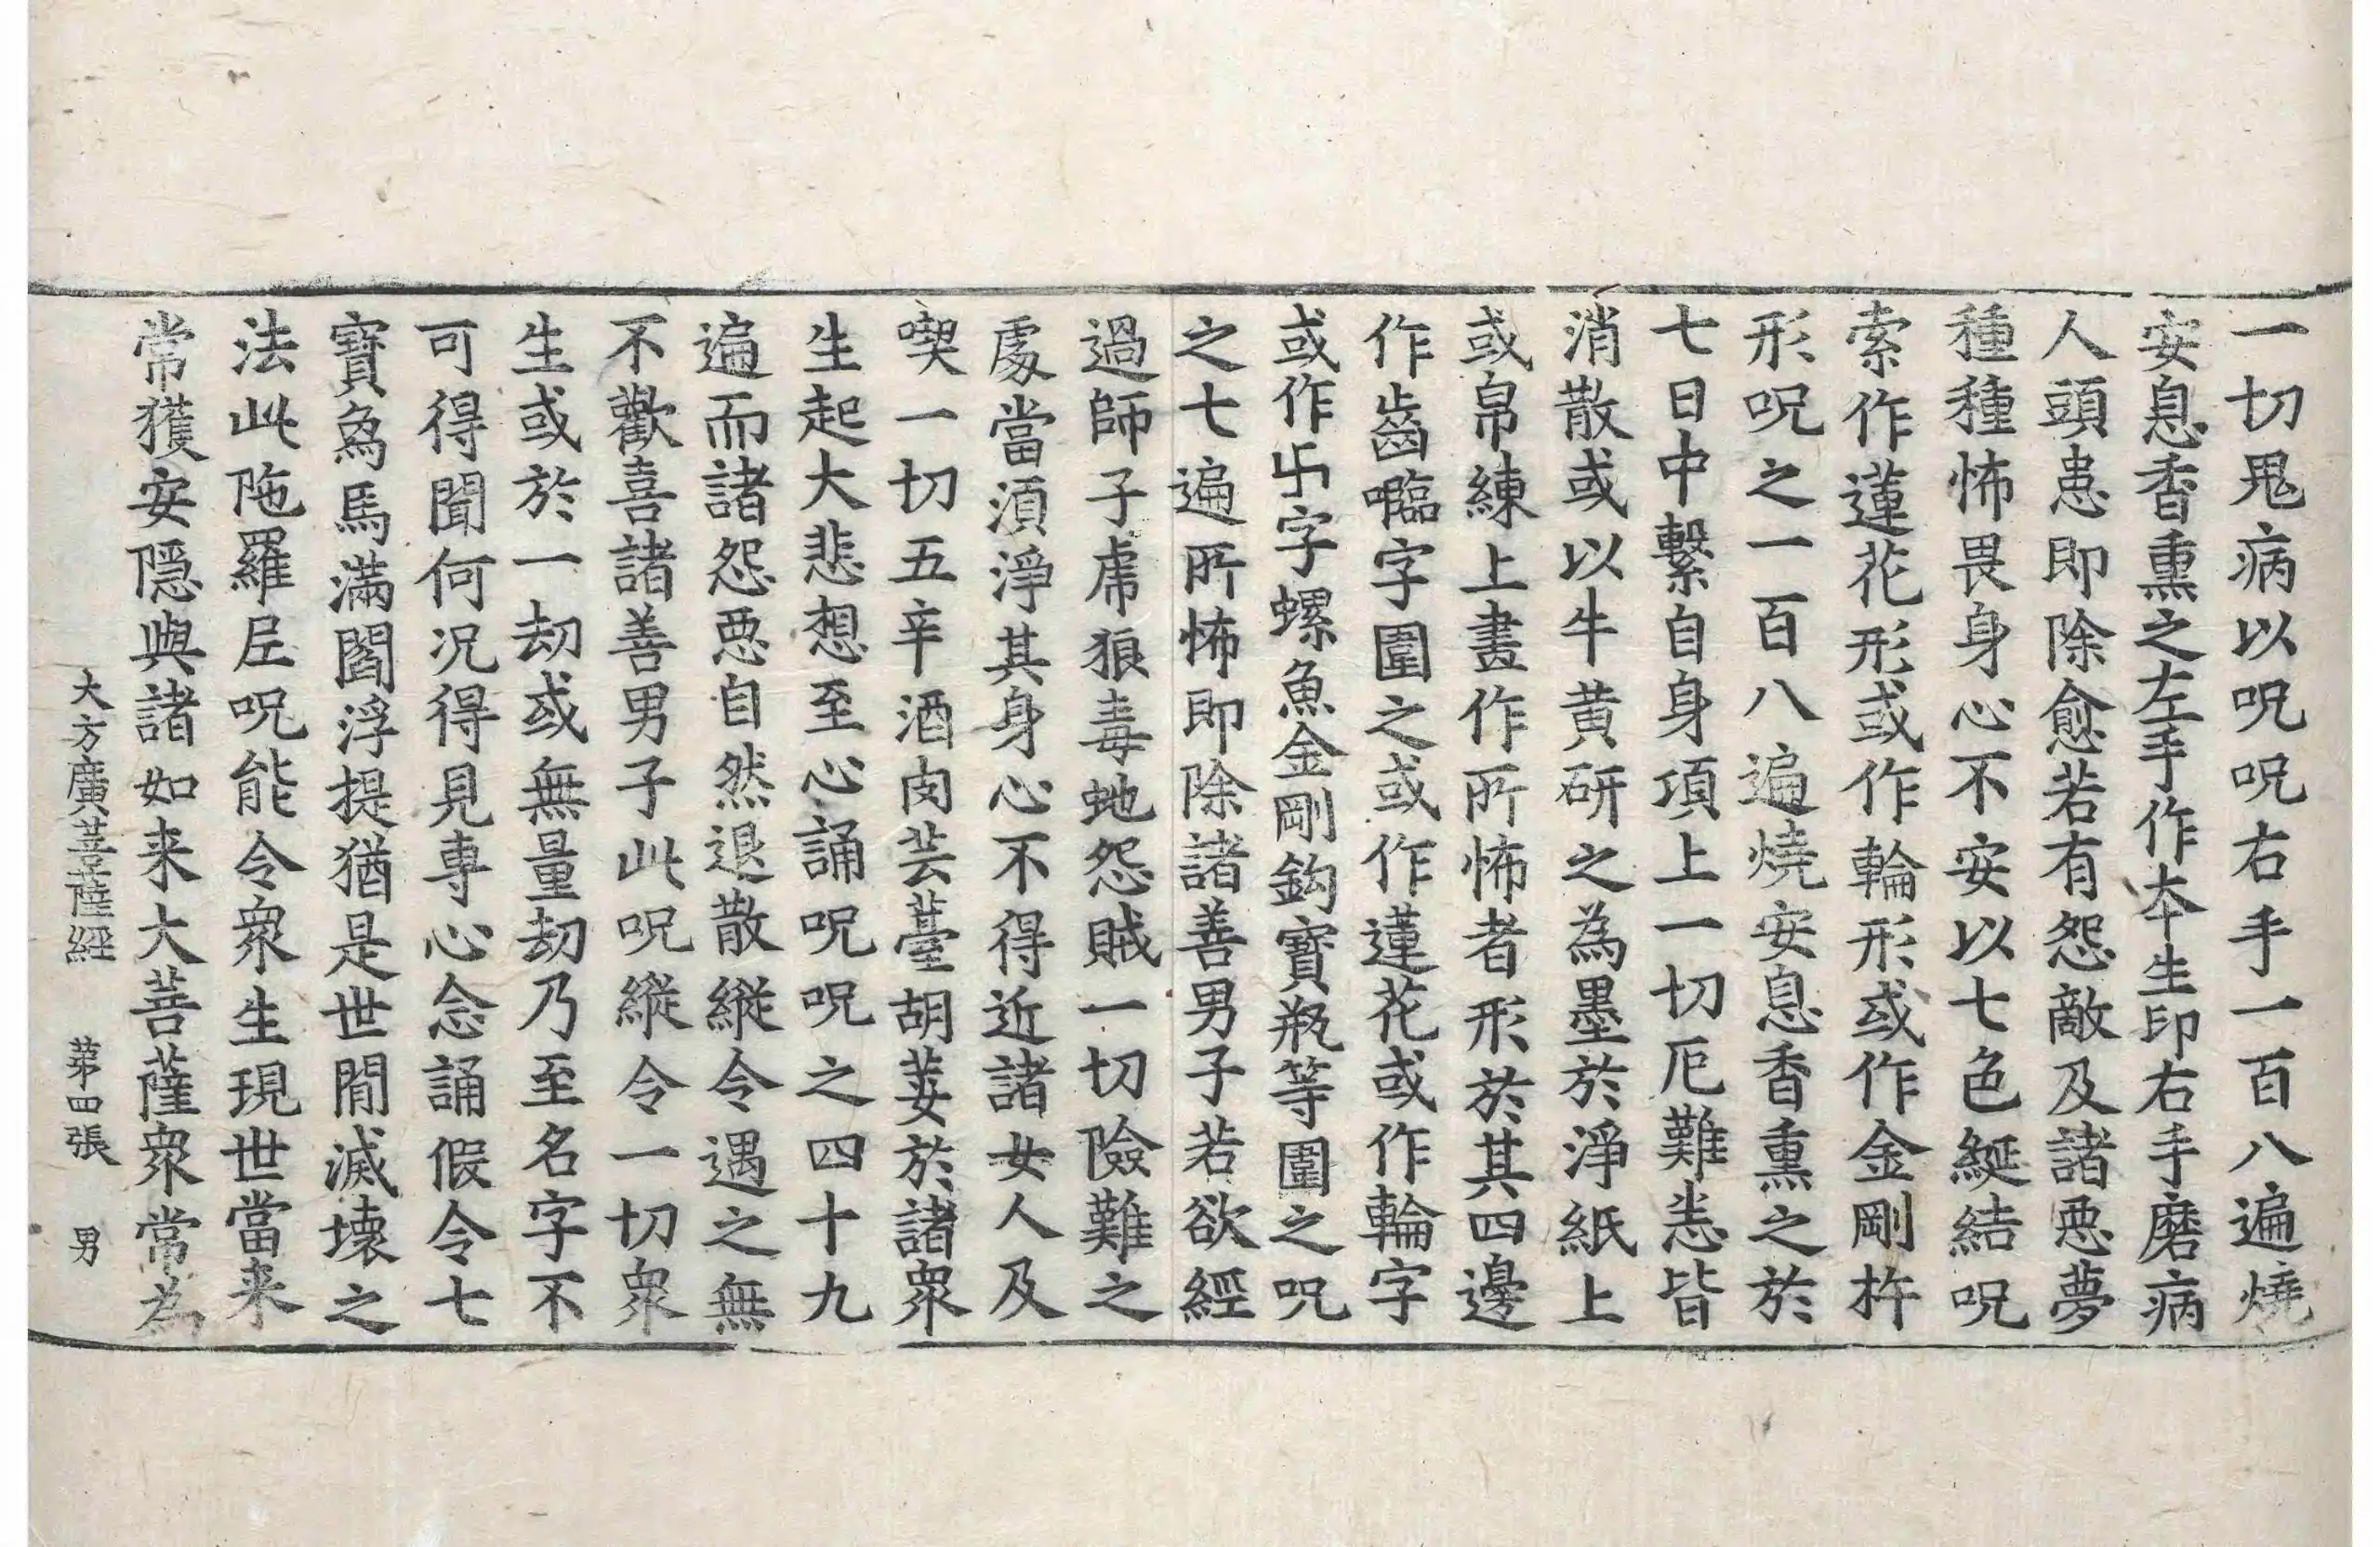 一切鬼病以呪呪右手一百八遍燒
安息香熏之左手作本生印右手磨病
人頭患即除愈若有怨敵及諸惡夢
種種怖畏身心不安以七色綖結呪
索作蓮花形或作輪形或作金剛杵
形呪之一百八遍燒安息香熏之於
七日中繫自身項上一切厄難悉皆
消散或以牛黃研之為墨於淨紙上
或帛練上畫作所怖者形於其四邊
作齒𡄦字圍之或作蓮花或作輪字
或作卐字螺魚金剛鈎寶瓶等圍之呪
之七遍所怖即除諸善男子若欲經
過師子虎狼毒虵怨賊一切險難之
處當湏淨其身心不得近諸女人及
喫一切五辛酒肉芸薹胡荽於諸衆
生起大悲想至心誦呪呪之四十九
遍而諸怨惡自然退散縱令遇之無
不歡喜諸善男子此呪縱令一切衆
生或於一劫或無量劫乃至名字不
可得聞何况得見專心念誦假令七
寶為馬滿閻浮提猶是世間滅壞之
法此陁羅尼呪能令衆生現世當来
常獲安隱與諸如来大菩薩衆常為
大方廣菩薩經 第四張 男